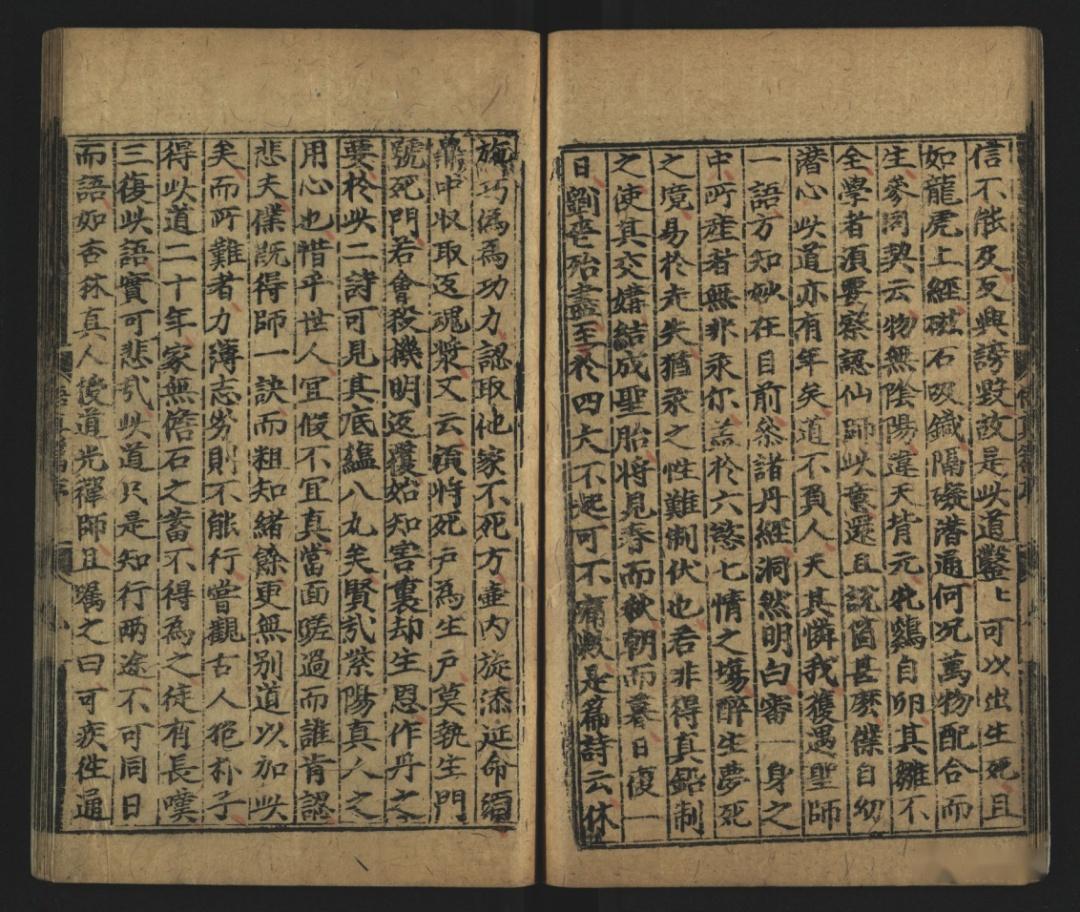 信不能及反興謗毀故是此道鑿上可以出生死且
如龍虎上經磁石吸鐵隔礙潜通何况萬物配合而
生參同契云物無陰陽違天背元牝鷄自卵其雛不
全學者須要察認仙師此意還且說箇甚麽僕自幼
潜心此道亦有年矣道不負人天其憐我獲遇聖師
一語方知妙在目前叅諸丹經洞然明白審一身之
中所産者無非汞尔盖於六慾七情之塲醉生夢死
之境易於走失猶汞之性難制伏也若非得真鉛制
之使其交媾結成聖胎將見春而秋朝而暮日復一
日劉喪殆盡至於四大不起可不痛歟是篇詩云休
施巧僞爲功力認取他家不死方壺内旋添延命須
鼎中収取返魂漿又云須將死户爲生户莫執生門
號死門若會殺機明返覆始知害裏却生恩作丹之
要於此二詩可見其底藴八九矣賢㢤紫陽真人之
用心也惜乎世人冝假不冝真當面蹉過而誰肯認
悲夫僕旣得師一訣而粗知緒餘更無别道以加此
矣而所難者力薄志劣則不能行嘗觀古人抱朴子
得此道二十年家無儋石之蓄不得爲之徒有長嘆
三復此語實可悲㢤此道只是知行兩途不可同日
而語如杏林真人傳道光禪師且囑之曰可疾徃通